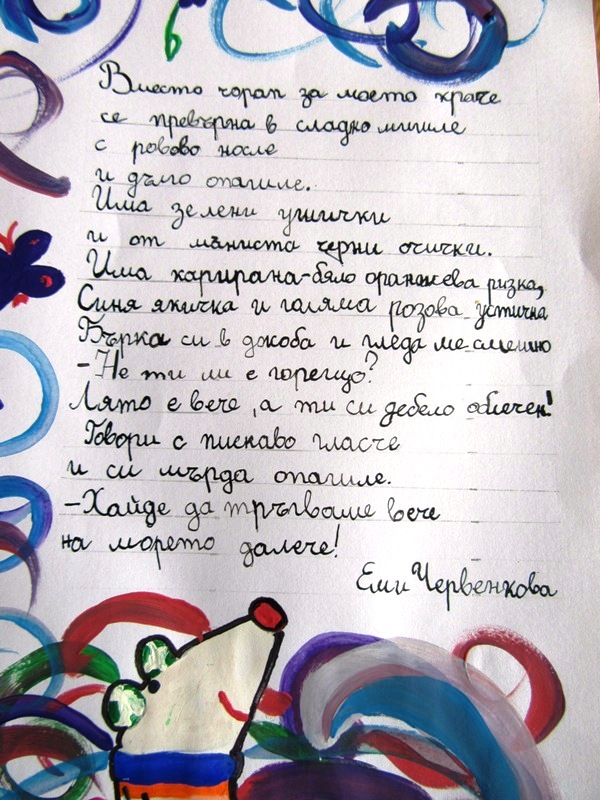 Вместо чорап за моето краче
се превърна в сладко мишле
с розово носле
и дълго опашле.
Има зелени ушички
и от мъниста черни очички.
Има карирана-бяло оранжева ризка,
Синя якичка и голяма розова устичка
Бърка си в джоба и гледа ме смешно
-Не ти ли е горещо?
Лято е вече, а ти си дебело облечен!
Говори с пискаво гласче
и си мърда опашле.
-Хайде да тръгваме вече
на морето далече!
Еми Червенкова